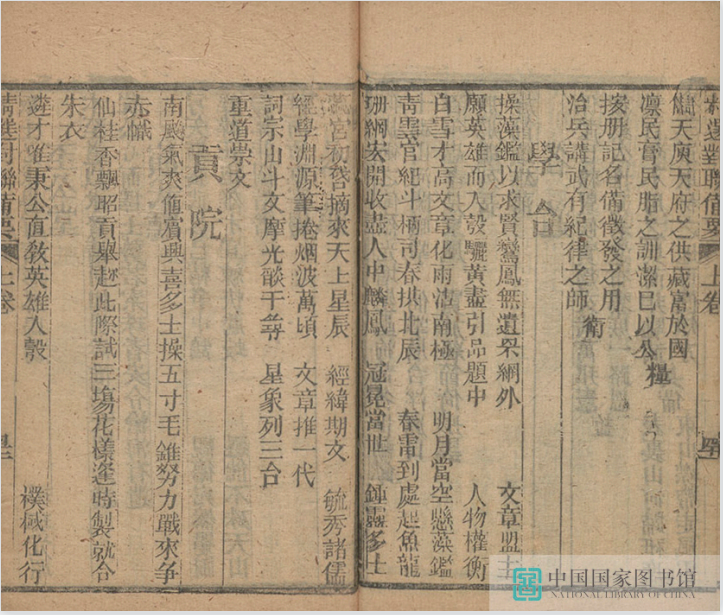 精選對聯備要 上卷
備天庾天府之供藏富於國
凜民膏民脂之訓潔巳以公 糧
按册記名備徵發之用
治兵講武有紀律之師 衛
學台
操藻鑑以求賢鸞鳳無遺罘網外 文章盟主
願英雄而入彀驪黃盡引品題中 人物權衡
白雪才高文章化雨沾南極 明月當空懸藻鑑
青雲官紀斗柄司春拱北辰 春雷到處起魚龍
珊網宏開收盡人中麟鳳 冠冕當世 鍾靈多士
官初啓摘來天上星辰 經緯期文 毓秀諸儒
經學淵源筆捲烟波萬頃 文章推一代
詞宗山斗文摩光燄千尋 星象列三台
重道崇文
貢院
南颷氣爽值賓興喜多士操五寸毛錐努力戰來爭
赤幟
仙桂香飄昭貢舉趂此際試三塲花樣逢時製就合
朱衣
遴才唯秉公直敎英雄入彀 樸棫化行
精選對聯備要 上卷
中国国家图书馆
NATIONAL LIBRARY OF CHINA